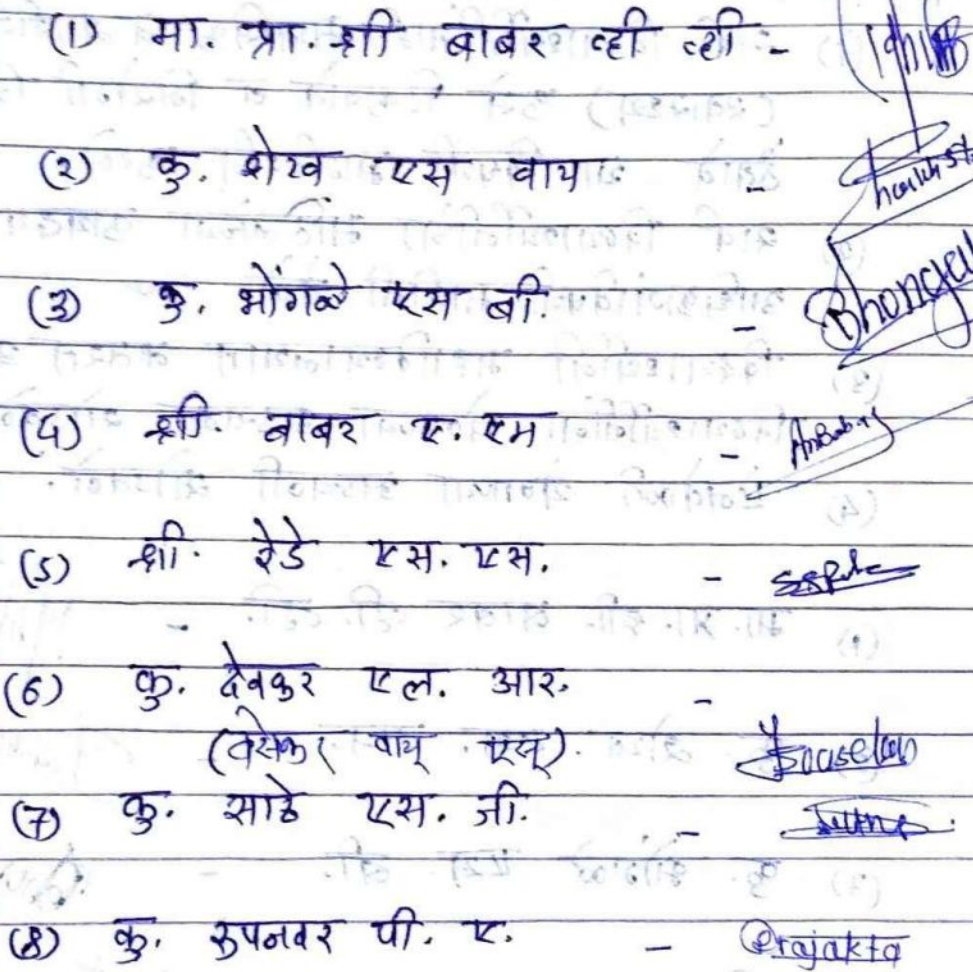 (1) मा. प्रा. श्री बाबर व्ही व्ही -
(२) कु. शेख एस वाय. -
(3) कु. भोंगळे एस बी. - Bhongale
(4) श्री. बाबर ए. एम -
(5) श्री. रेडे एस. एस. -
(6) कु. देवकुर एल. आर. -
(वसेकर वाय् एस्)
(7) कु. साठे एस. जी. -
(8) कु. रुपनवर पी. ए. - Prajakta